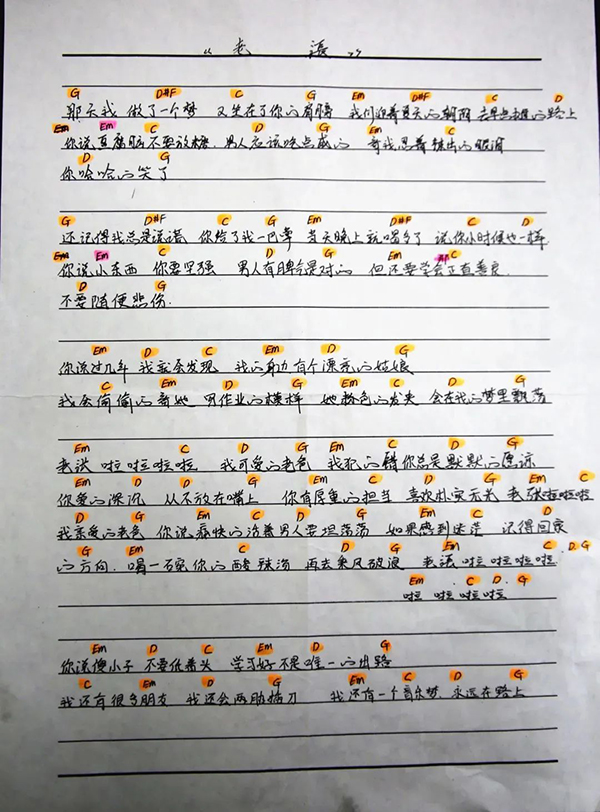 《老 张》
G D#F C G Em D#F C D
那天我 做了一个梦 又坐在了你的肩膀 我们沿着夏天的朝阳 去早点摊的路上
Em Em C D G Em C
你说豆腐脑不要放糖 男人应该吃点咸的 等我忍着辣出的眼泪
D G
你哈哈的笑了
G D#F C G Em D#F C D
还记得我总是说谎 你给了我一巴掌 当天晚上就喝多了 说你小时候也一样
Em C D G Em C
你说小东西 你要坚强 男人有脾气是对的 但还要学会正直善良
D G
不要随便悲伤.
Em D C Em D G
你说过几年 我就会发现 我的身边有个漂亮的姑娘
Em C D G Em C D G
我会偷偷的看她 写作业的模样 她粉色的发夹 会在我的梦里飘荡
Em C D G Em C D G
老张 啦啦啦啦 我可爱的老爸 我犯的错你总是默默的原谅
Em D C G Em D G Em C
你爱的深沉 从不放在嘴上 你有厚重的担当 喜欢朴实无光 老张啦啦啦
D G Em C D G Em C D
我亲爱的老爸 你说痛快的活着男人要坦荡荡 如果感到迷茫 记得回家
G Em C D G Em C D.G
的方向. 喝一碗你的酸辣汤 再去乘风破浪 老张 啦啦啦啦
Em . C D . G
啦 啦啦啦
Em D C Em D G
你说傻小子 不要低着头 学习好不是唯一的出路
C Em D G C Em C D G
我还有很多朋友 我还会两肋插刀 我还有一个音乐梦. 永远在路上